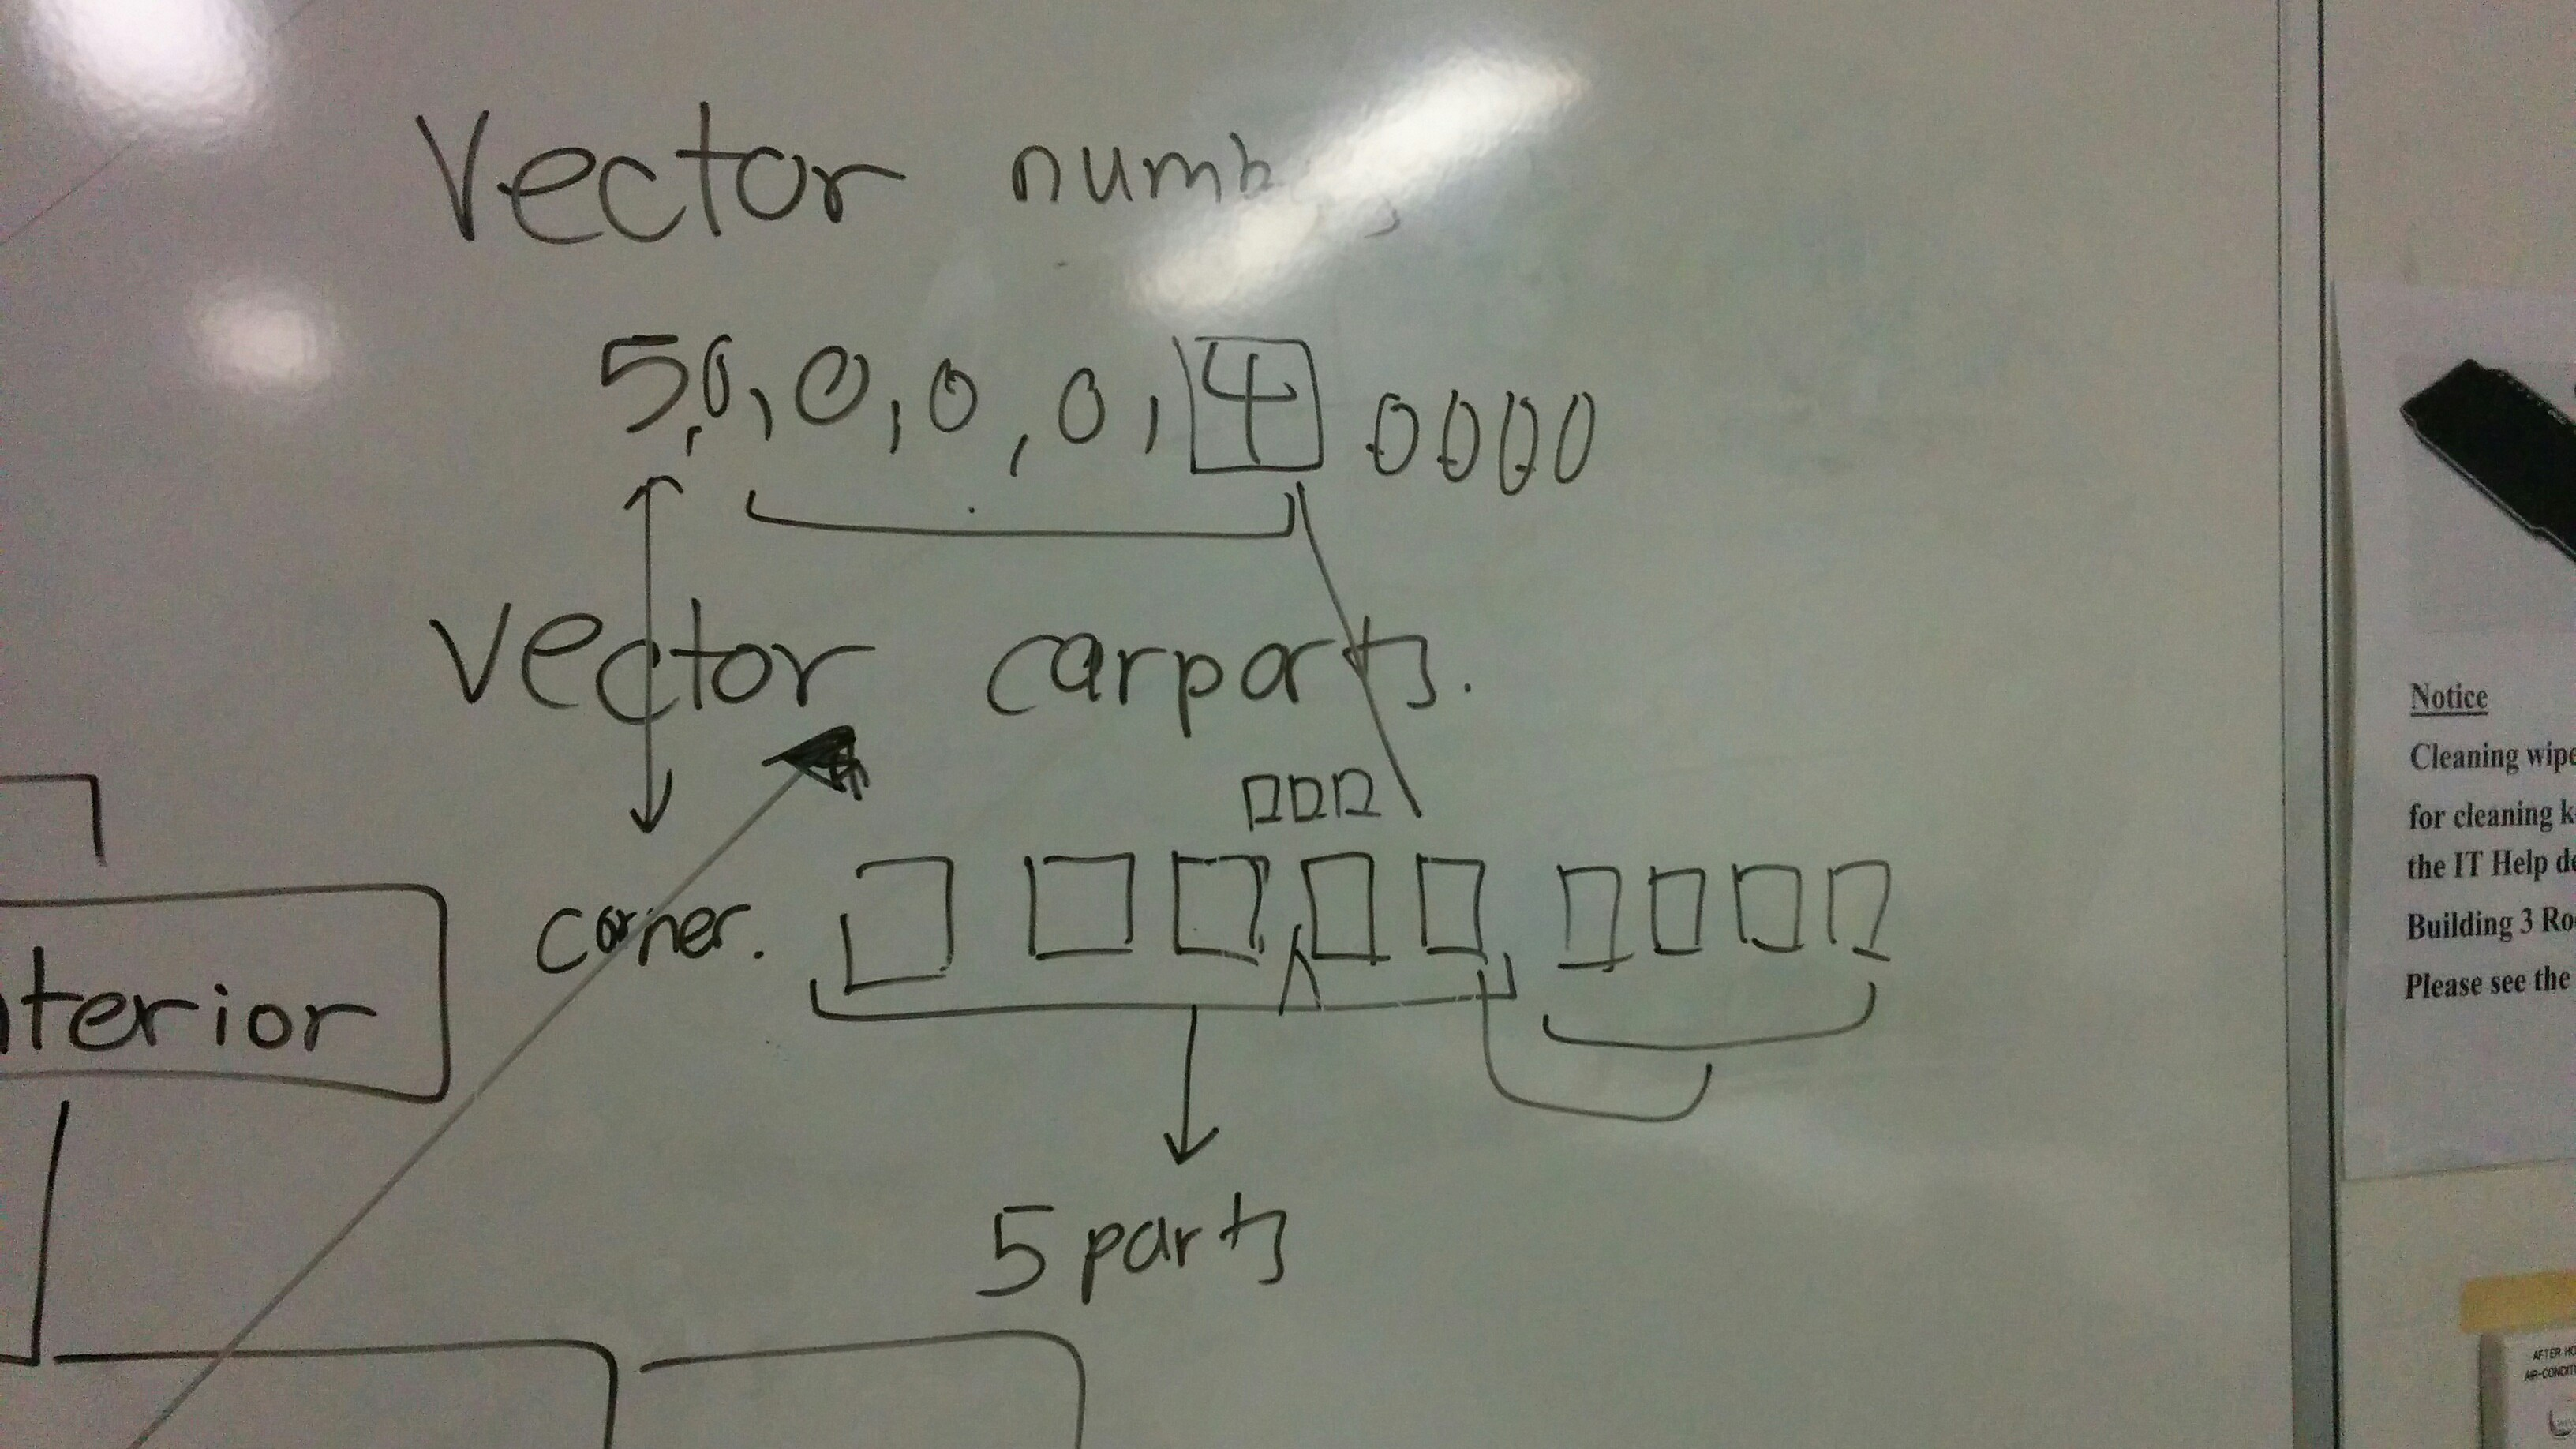 Vector
5,0,0,0,0,4 0000
Vector carparts.
corner.
nterior
5 parts
Notice
Cleaning wipe
for cleaning k
the IT Help de
Building 3 Ro
Please see the
AFTER HO
AIR-CONDITI